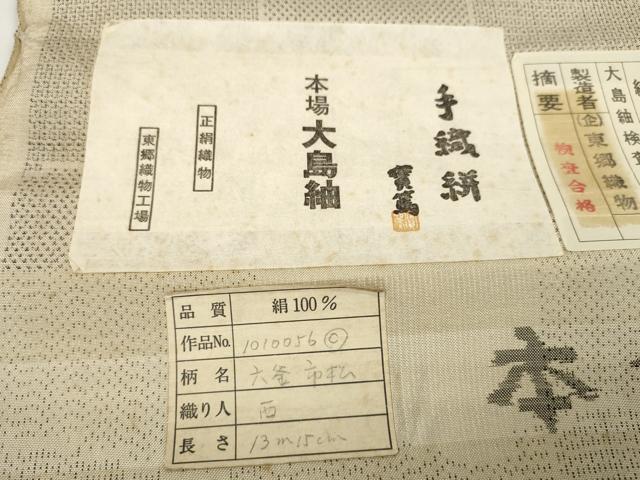 手織絣
實篤
本場
大島紬
正絹織物
東郷織物工場
大島紬検
製造者(企)東郷織物
摘要
検査合格
品質 絹100%
作品No. 1010056 C
柄名 六釜市松
織り人 西
長さ 13m15cm
本